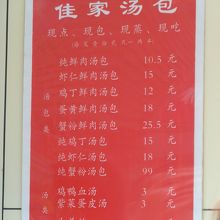 佳家汤包
现点、现包、现蒸、现吃
纯鲜肉汤包 10.5 元
虾仁鲜肉汤包 15 元
鸡丁鲜肉汤包 12 元
蛋黄鲜肉汤包 18 元
蟹粉鲜肉汤包 25.5 元
纯鸡丁汤包 15 元
纯虾仁汤包 18 元
纯蟹粉汤包 99 元
汤包类
鸡鸭血汤 3 元
紫菜蛋皮汤 3 元
汤类